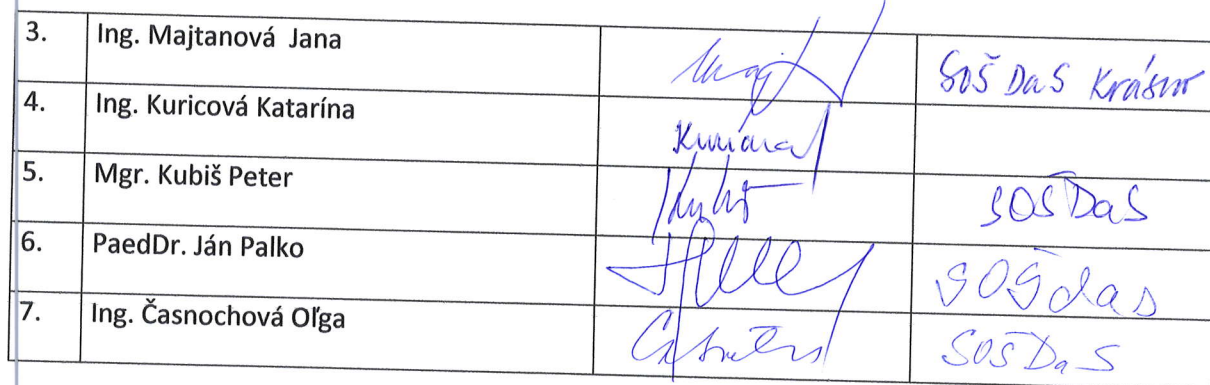 3. Ing. Majtanová Jana SOŠ DaS Krásno
4. Ing. Kuricová Katarína
5. Mgr. Kubiš Peter SOŠ DaS
6. PaedDr. Ján Palko SOŠ das
7. Ing. Časnochová Oľga SOŠ DaS